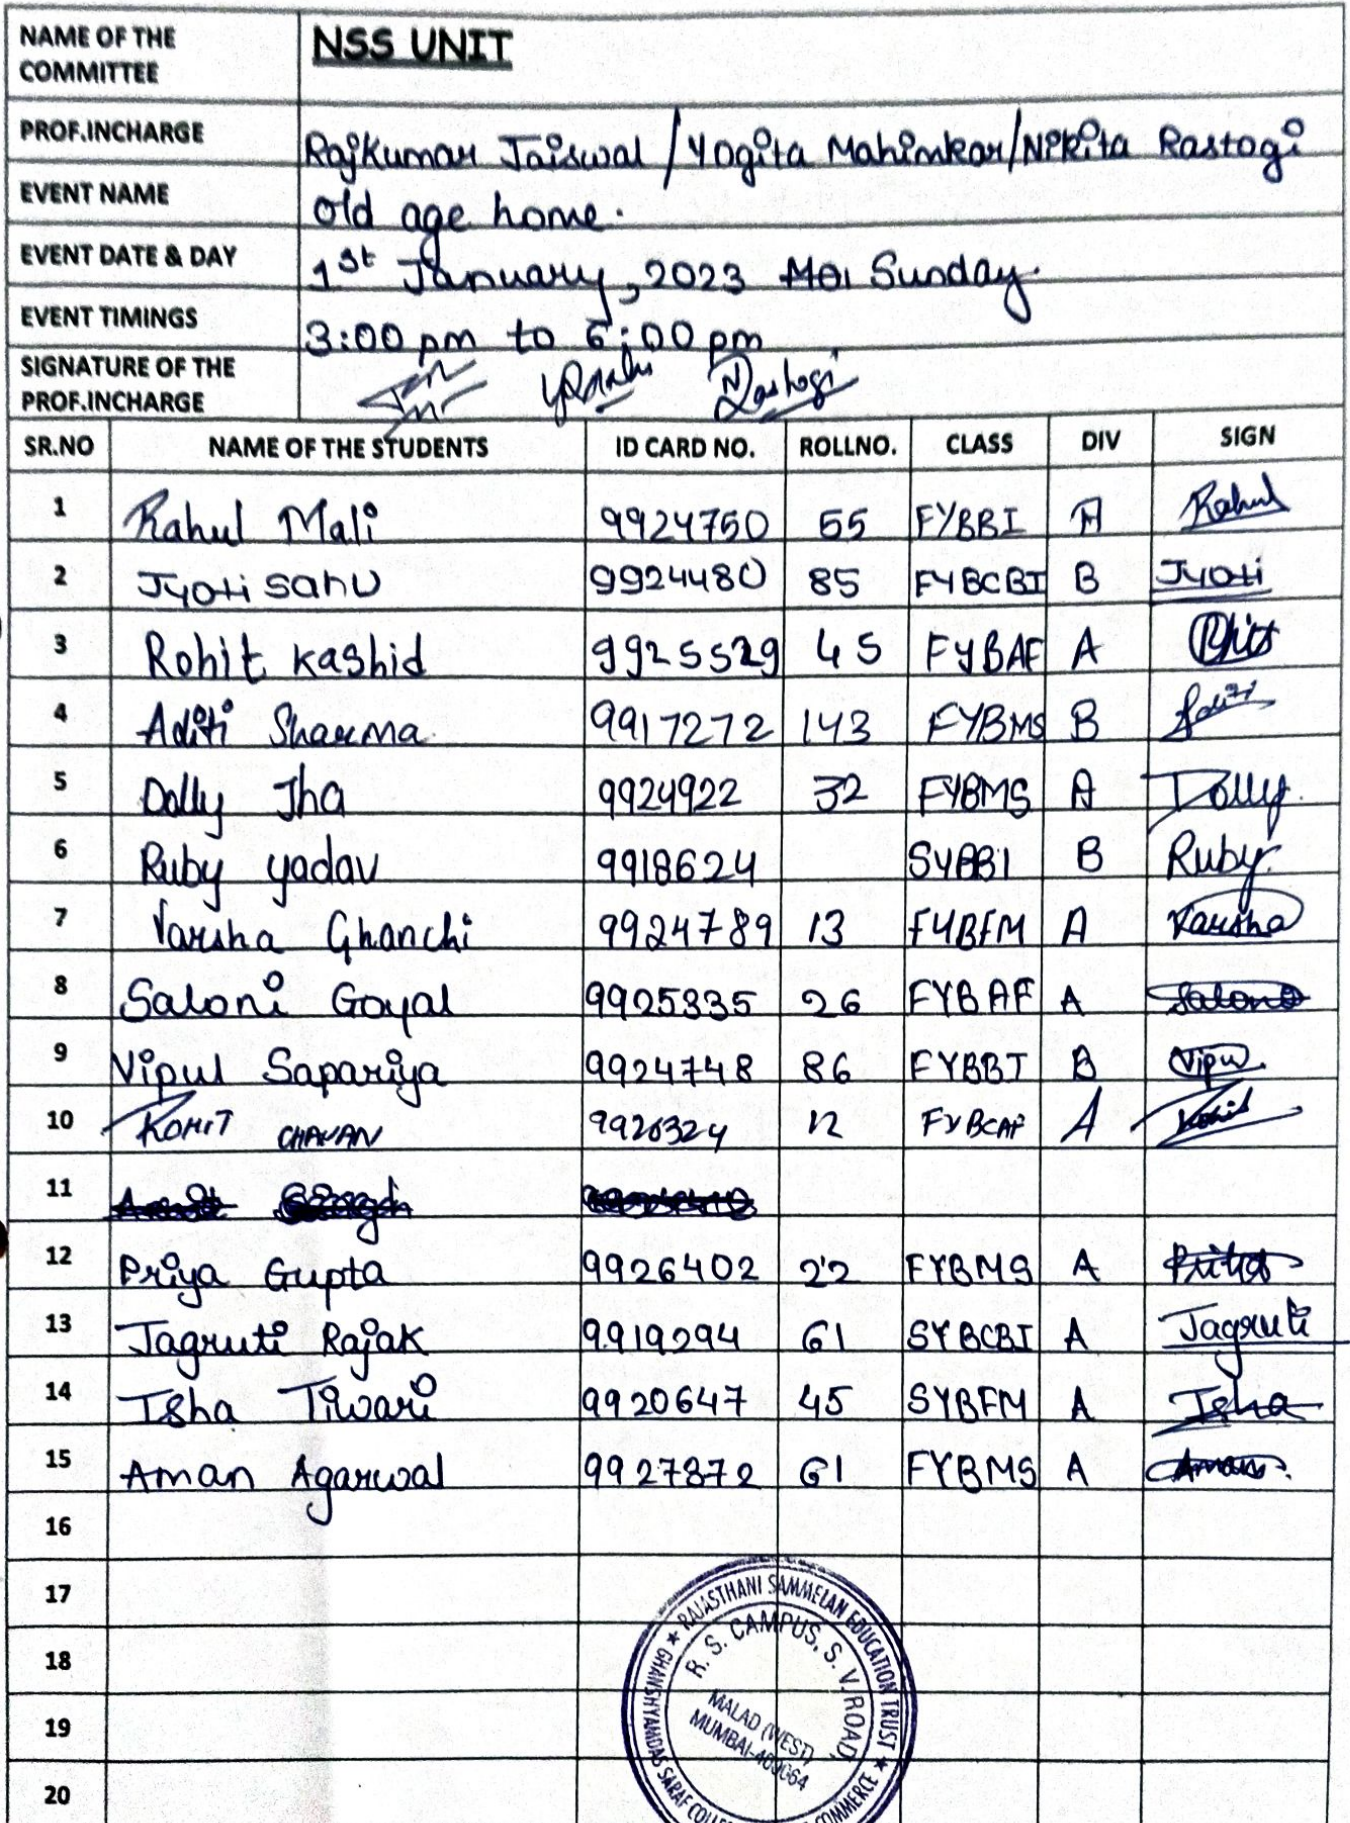 NAME OF THE COMMITTEE NSS UNIT
PROF.INCHARGE Rajkumar Jaiswal / Yogita Mahimkar/Nikita Rastogi
EVENT NAME Old age home.
EVENT DATE & DAY 1st January, 2023 Sunday.
EVENT TIMINGS 3:00 pm to 6:00 pm
SIGNATURE OF THE PROF.INCHARGE Rastogi
SR.NO NAME OF THE STUDENTS ID CARD NO. ROLLNO. CLASS DIV SIGN
1 Rahul Mali 9924750 55 FYBBI A Rahul
2 Jyoti sahu 9924480 85 FYBCBI B Jyoti
3 Rohit kashid 9925529 45 FYBAF A
4 Aditi Sharma 9917272 143 FYBMS B Aditi
5 Dolly Jha 9924922 32 FYBMS A Dolly
6 Ruby yadav 9918624 SYBBI B Ruby
7 Varsha Ghanchi 9924789 13 FYBFM A Varsha
8 Saloni Goyal 9925335 26 FYBAF A Saloni
9 Vipul Sapariya 9924748 86 FYBBI B Vipul
10 CHAVAN 9926324 12 A
11
12 Priya Gupta 9926402 22 FYBMS A Priya
13 Jagruti Rajak 9919294 61 SYBCBI A Jagruti
14 Isha Tiwari 9920647 45 SYBFM A Isha
15 Aman Agarwal 9927872 61 FYBMS A Aman
16
17
18
19
20
★ RAJASTHANI SAMMELAN EDUCATION TRUST ★
GHANSHYAMDAS SARAF COMMERCE
R. S. CAMPUS, S. V. ROAD,
MALAD (WEST)
MUMBAI-400064